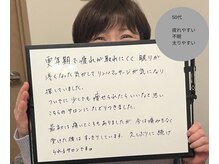 50代
疲れやすい
不眠
太りやすい
更年期で疲れが取れにくく 眠りが
浅くなった気がして リンパマッサージが気になり
探していました。
ついでに少しでも痩せられたらいいなと思い
こちらのサロンにたどりつきました。
最初は痛いところもありましたが 今は痛みもなく
受けた後はすっきりしています。 久しぶりに続け
られるサロンです。